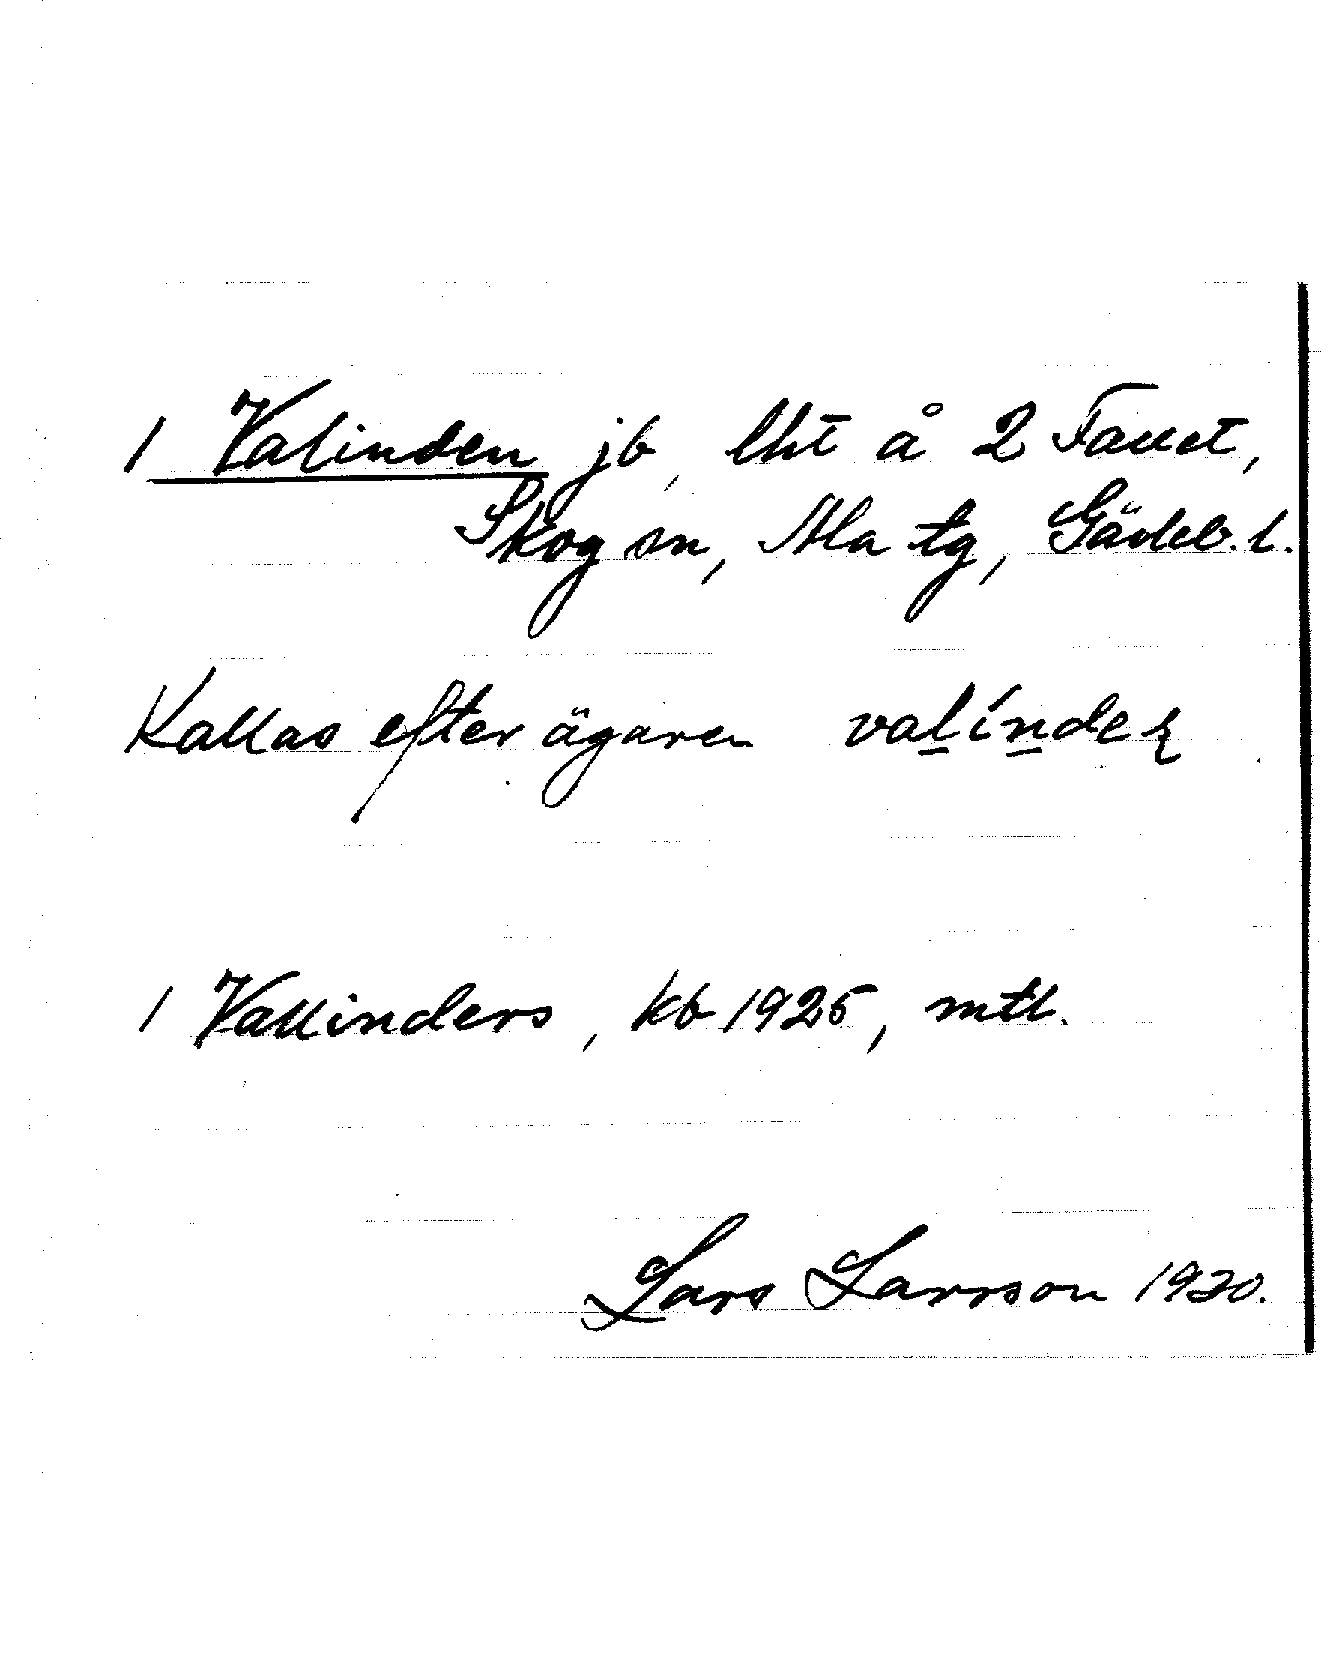 1 Valinden jb, lht å 2 Fallet,
Skog sn, Ala tg, Gävleb. l.
Kallas efter ägaren valíndeɳ
1 Vallinders, kb 1925, mtl.
Lars Larsson 1920.